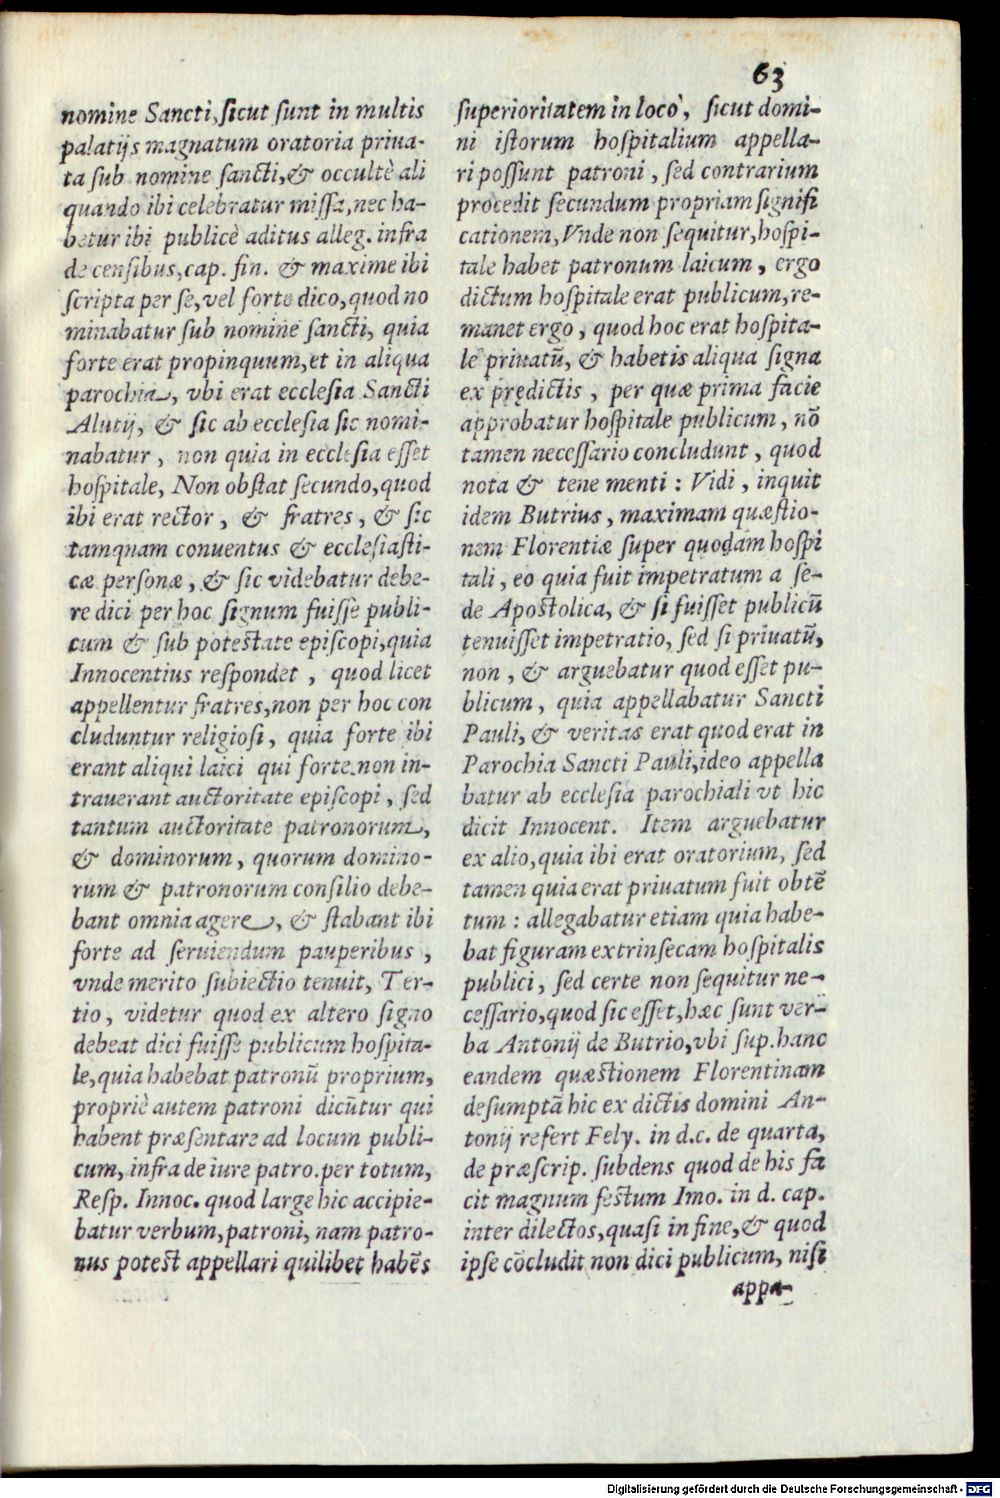 63
nomine Sancti, sicut sunt in multis
palatijs magnatum oratoria priua-
ta sub nomine sancti, & occultè ali
quando ibi celebratur missa, nec ha-
betur ibi publicè aditus alleg. infra
de censibus, cap. fin. & maxime ibi
scripta per se, vel forte dico, quod no
minabatur sub nomine sancti, quia
forte erat propinquum, et in aliqua
parochia, vbi erat ecclesia Sancti
Alutij, & sic ab ecclesia sic nomi-
nabatur, non quia in ecclesia esset
hospitale, Non obstat secundo, quod
ibi erat rector, & fratres, & sic
tamquam conuentus & ecclesiasti-
cæ personæ, & sic videbatur debe-
re dici per hoc signum fuisse publi-
cum & sub potestate episcopi, quia
Innocentius respondet, quod licet
appellentur fratres, non per hoc con
cluduntur religiosi, quia forte ibi
erant aliqui laici qui forte non in-
trauerant auctoritate episcopi, sed
tantum auctoritate patronorum,
& dominorum, quorum domino-
rum & patronorum consilio debe-
bant omnia agere, & stabant ibi
forte ad seruiendum pauperibus,
vnde merito subiectio tenuit, Ter-
tio, videtur quod ex altero signo
debeat dici fuisse publicum hospita-
le, quia habebat patronũ proprium,
propriè autem patroni dicũtur qui
habent præsentare ad locum publi-
cum, infra de iure patro. per totum,
Resp. Innoc. quod large hic accipie-
batur verbum, patroni, nam patro-
nus potest appellari quilibet habẽs
superioritatem in loco, sicut domi-
ni istorum hospitalium appella-
ri possunt patroni, sed contrarium
procedit secundum propriam signifi
cationem, Vnde non sequitur, hospi-
tale habet patronum laicum, ergo
dictum hospitale erat publicum, re-
manet ergo, quod hoc erat hospita-
le priuatũ, & habetis aliqua signa
ex prędictis, per quæ prima facie
approbatur hospitale publicum, nõ
tamen necessario concludunt, quod
nota & tene menti: Vidi, inquit
idem Butrius, maximam quæstio-
nem Florentiæ super quodam hospi
tali, eo quia fuit impetratum a se-
de Apostolica, & si fuisset publicũ
tenuisset impetratio, sed si priuatũ,
non, & arguebatur quod esset pu-
blicum, quia appellabatur Sancti
Pauli, & veritas erat quod erat in
Parochia Sancti Pauli, ideo appella
batur ab ecclesia parochiali vt hic
dicit Innocent. Item arguebatur
ex alio, quia ibi erat oratorium, sed
tamen quia erat priuatum fuit obtẽ
tum: allegabatur etiam quia habe-
bat figuram extrinsecam hospitalis
publici, sed certe non sequitur ne-
cessario, quod sic esset, hæc sunt ver-
ba Antonij de Butrio, vbi sup. hanc
eandem quæstionem Florentinam
desumptã hic ex dictis domini An-
tonij refert Fely. in d.c. de quarta,
de præscrip. subdens quod de his fa
cit magnum festum Imo. in d. cap.
inter dilectos, quasi in fine, & quod
ipse cõcludit non dici publicum, nisi
appa-
Digitalisierung gefördert durch die Deutsche Forschungsgemeinschaft - DFG